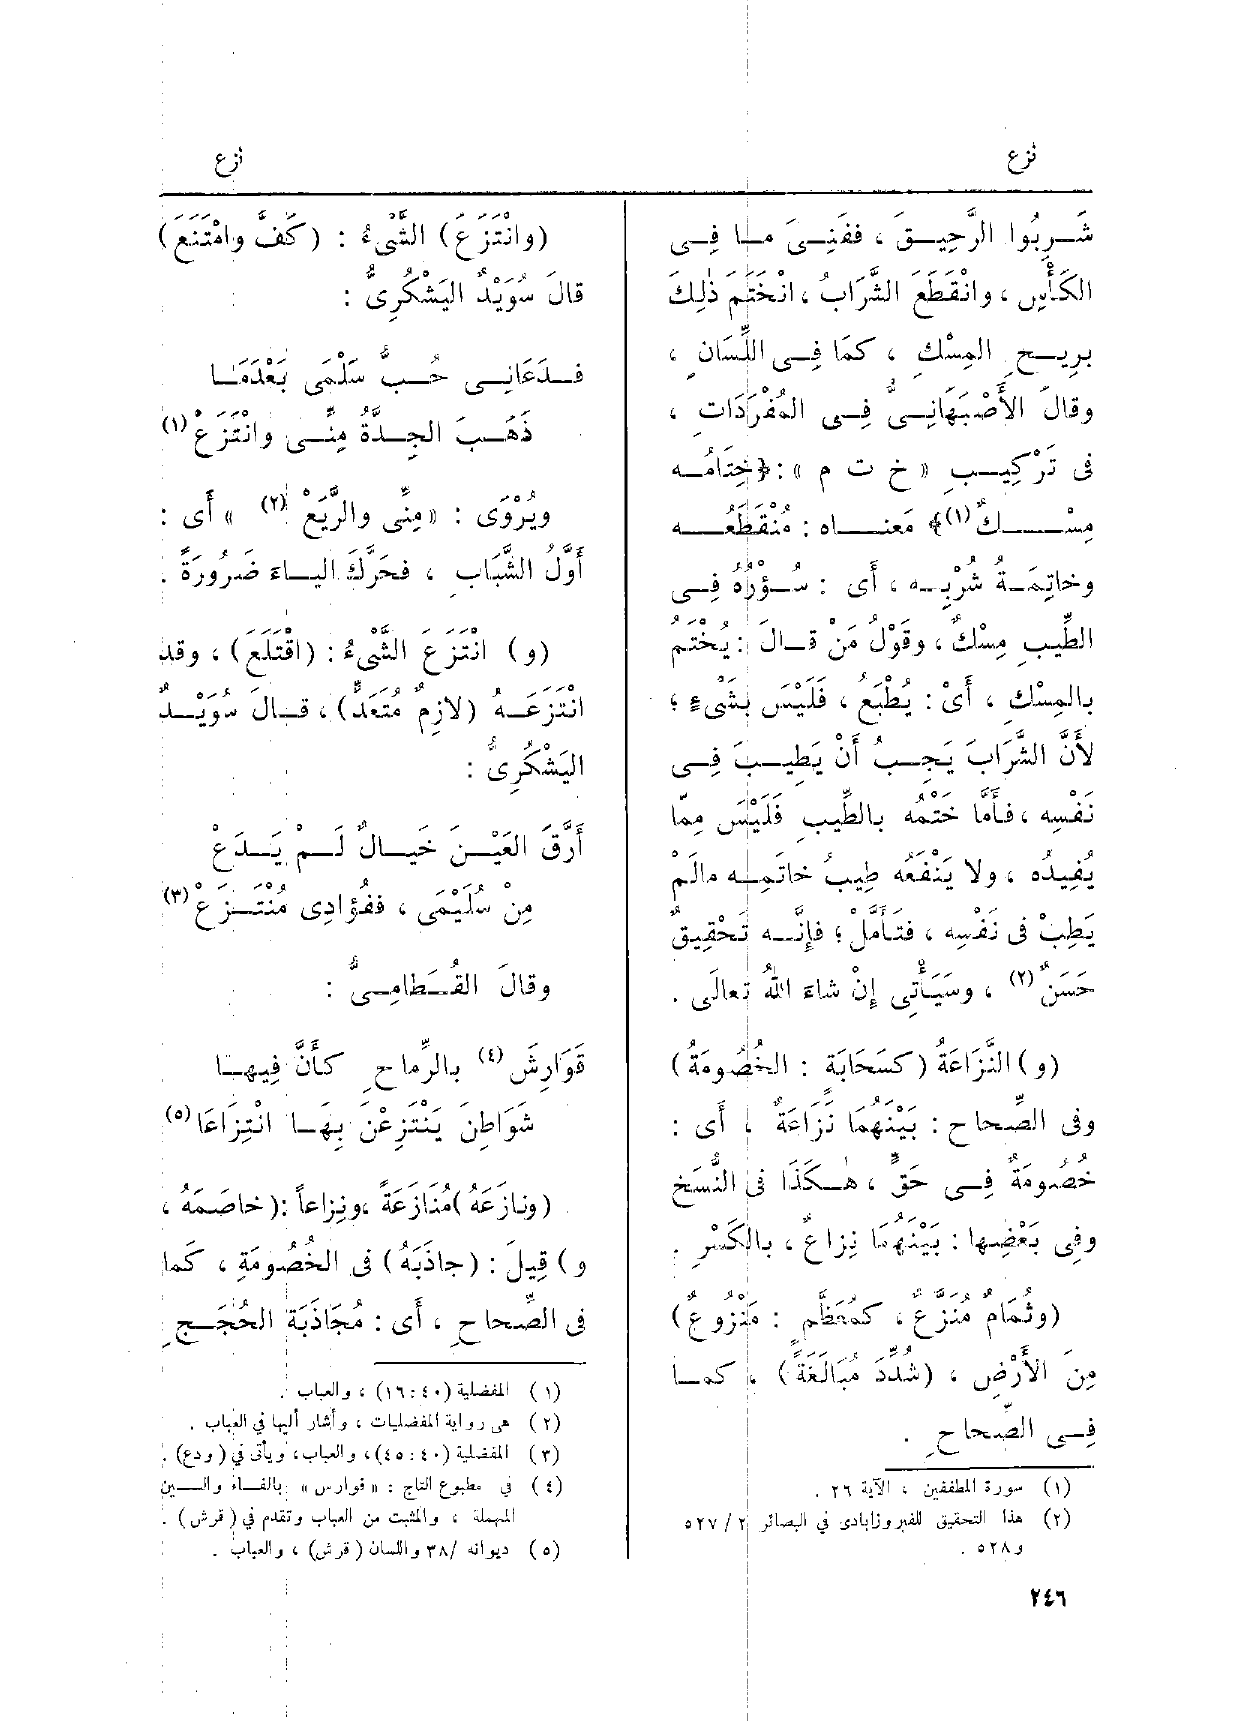 نزع
نزع
شَرِبُوا الرَّحِيقَ ، ففَنِىَ ما فِى
الكَأْسِ ، وانْقَطَعَ الشَّرَابُ ، انْخَتَمَ ذٰلِكَ
بِرِيحِ المِسْكِ ، كَمَا فِى اللِّسَانِ ،
وقالَ الأَصْبَهَانِىُّ فِى المُفْرَدَاتِ ،
فى تَرْكِيبِ « خ ت م » : ﴿خِتَامُه
مِسْكٌ (١)﴾ مَعناه : مُنْقَطَعُه
وخاتِمَةُ شُرْبِه ، أَى : سُؤْرُهُ فِى
الطِّيبِ مِسْكٌ ، وقَوْلُ مَنْ قالَ : يُخْتَمُ
بالمِسْكِ ، أَىْ : يُطْبَعُ ، فَلَيْسَ بشَىْءٍ ؛
لأَنَّ الشَّرَابَ يَجِبُ أَنْ يَطِيبَ فِى
نَفْسِه ، فأَمَّا خَتْمُه بالطِّيبِ فَلَيْسَ مِمّا
يُفِيدُه ، ولا يَنْفَعُه طِيبُ خاتَمِه مالَمْ
يَطِبْ فى نَفْسِه ، فتَأَمَّلْ ؛ فإِنَّه تَحْقِيقٌ
حَسَنٌ (٢) ، وسَيَأْتِى إِنْ شاءَ اللهُ تعالَى .
(و) النَّزَاعَةُ (كسَحَابَة : الخُصُومَةُ)
وفى الصِّحاحِ : بَيْنَهُمَا نَزَاعَةٌ ، أَى :
خُصُومَةٌ فِى حَقٍّ ، هكَذَا فى النُّسَخِ
وفِى بَعْضِها : بَيْنَهُمَا نِزاعٌ ، بالكَسْرِ .
(وثُمَامٌ مُنَزَّعٌ ، كمُعَظَّمٍ : مَنْزُوعٌ)
مِنَ الأَرْضِ ، (شُدِّدَ مُبَالَغَةً) ، كما
فِى الصِّحاحِ .
(١) سورة المطففين ، الآية ٢٦ .
(٢) هذا التحقيق للفيروزابادى في البصائر ٢ / ٥٢٧
و٥٢٨ .
٢٤٦
(وانْتَزَعَ) الشَّىْءُ : (كَفَّ وامْتَنَعَ)
قالَ سُوَيْدٌ اليَشْكُرِىُّ :
فدَعَانِى حُبُّ سَلْمَى بَعْدَمَا
ذَهَبَ الجِدَّةُ مِنِّى وانْتَزَعْ (١)
ويُرْوَى : « مِنِّى والرَّيَعْ (٢) » أَى :
أَوَّلُ الشَّبَابِ ، فحَرَّكَ الياءَ ضَرُورَةً .
(و) انْتَزَعَ الشَّىْءُ : (اقْتَلَعَ) ، وقد
انْتَزَعَهُ (لازِمٌ مُتَعَدٍّ) ، قالَ سُوَيْدٌ
اليَشْكُرِىُّ :
أَرَّقَ العَيْنَ خَيالٌ لَمْ يَدَعْ
مِنْ سُلَيْمَى ، ففُؤادِى مُنْتَزَعْ (٣)
وقالَ القُطَامِىُّ :
قَوَارِشَ (٤) بالرِّماحِ كأَنَّ فِيها
شَوَاطِنَ يَنْتَزِعْنَ بِهَا انْتِزَاعَا (٥)
(ونازَعَهُ) مُنَازَعَةً ، ونِزاعاً : (خاصَمَهُ ،
و) قِيلَ : (جاذَبَهُ) فى الخُصُومَةِ ، كَما
فى الصِّحاحِ ، أَى : مُجَاذَبَة الحُجَجِ
(١) المفضلية (٤٠ : ١٦) ، والعباب .
(٢) هى رواية المفضليات ، وأشار أليها في العباب .
(٣) المفضلية (٤٠ : ٤٥) ، والعباب ، ويأتى في (ودع) .
(٤) في مطبوع التاج : « قوارس » بالفاء والسين
المهملة ، والمثبت من العباب وتقدم في (قرش) .
(٥) ديوانه /٣٨ واللسان (قرش) ، والعباب .